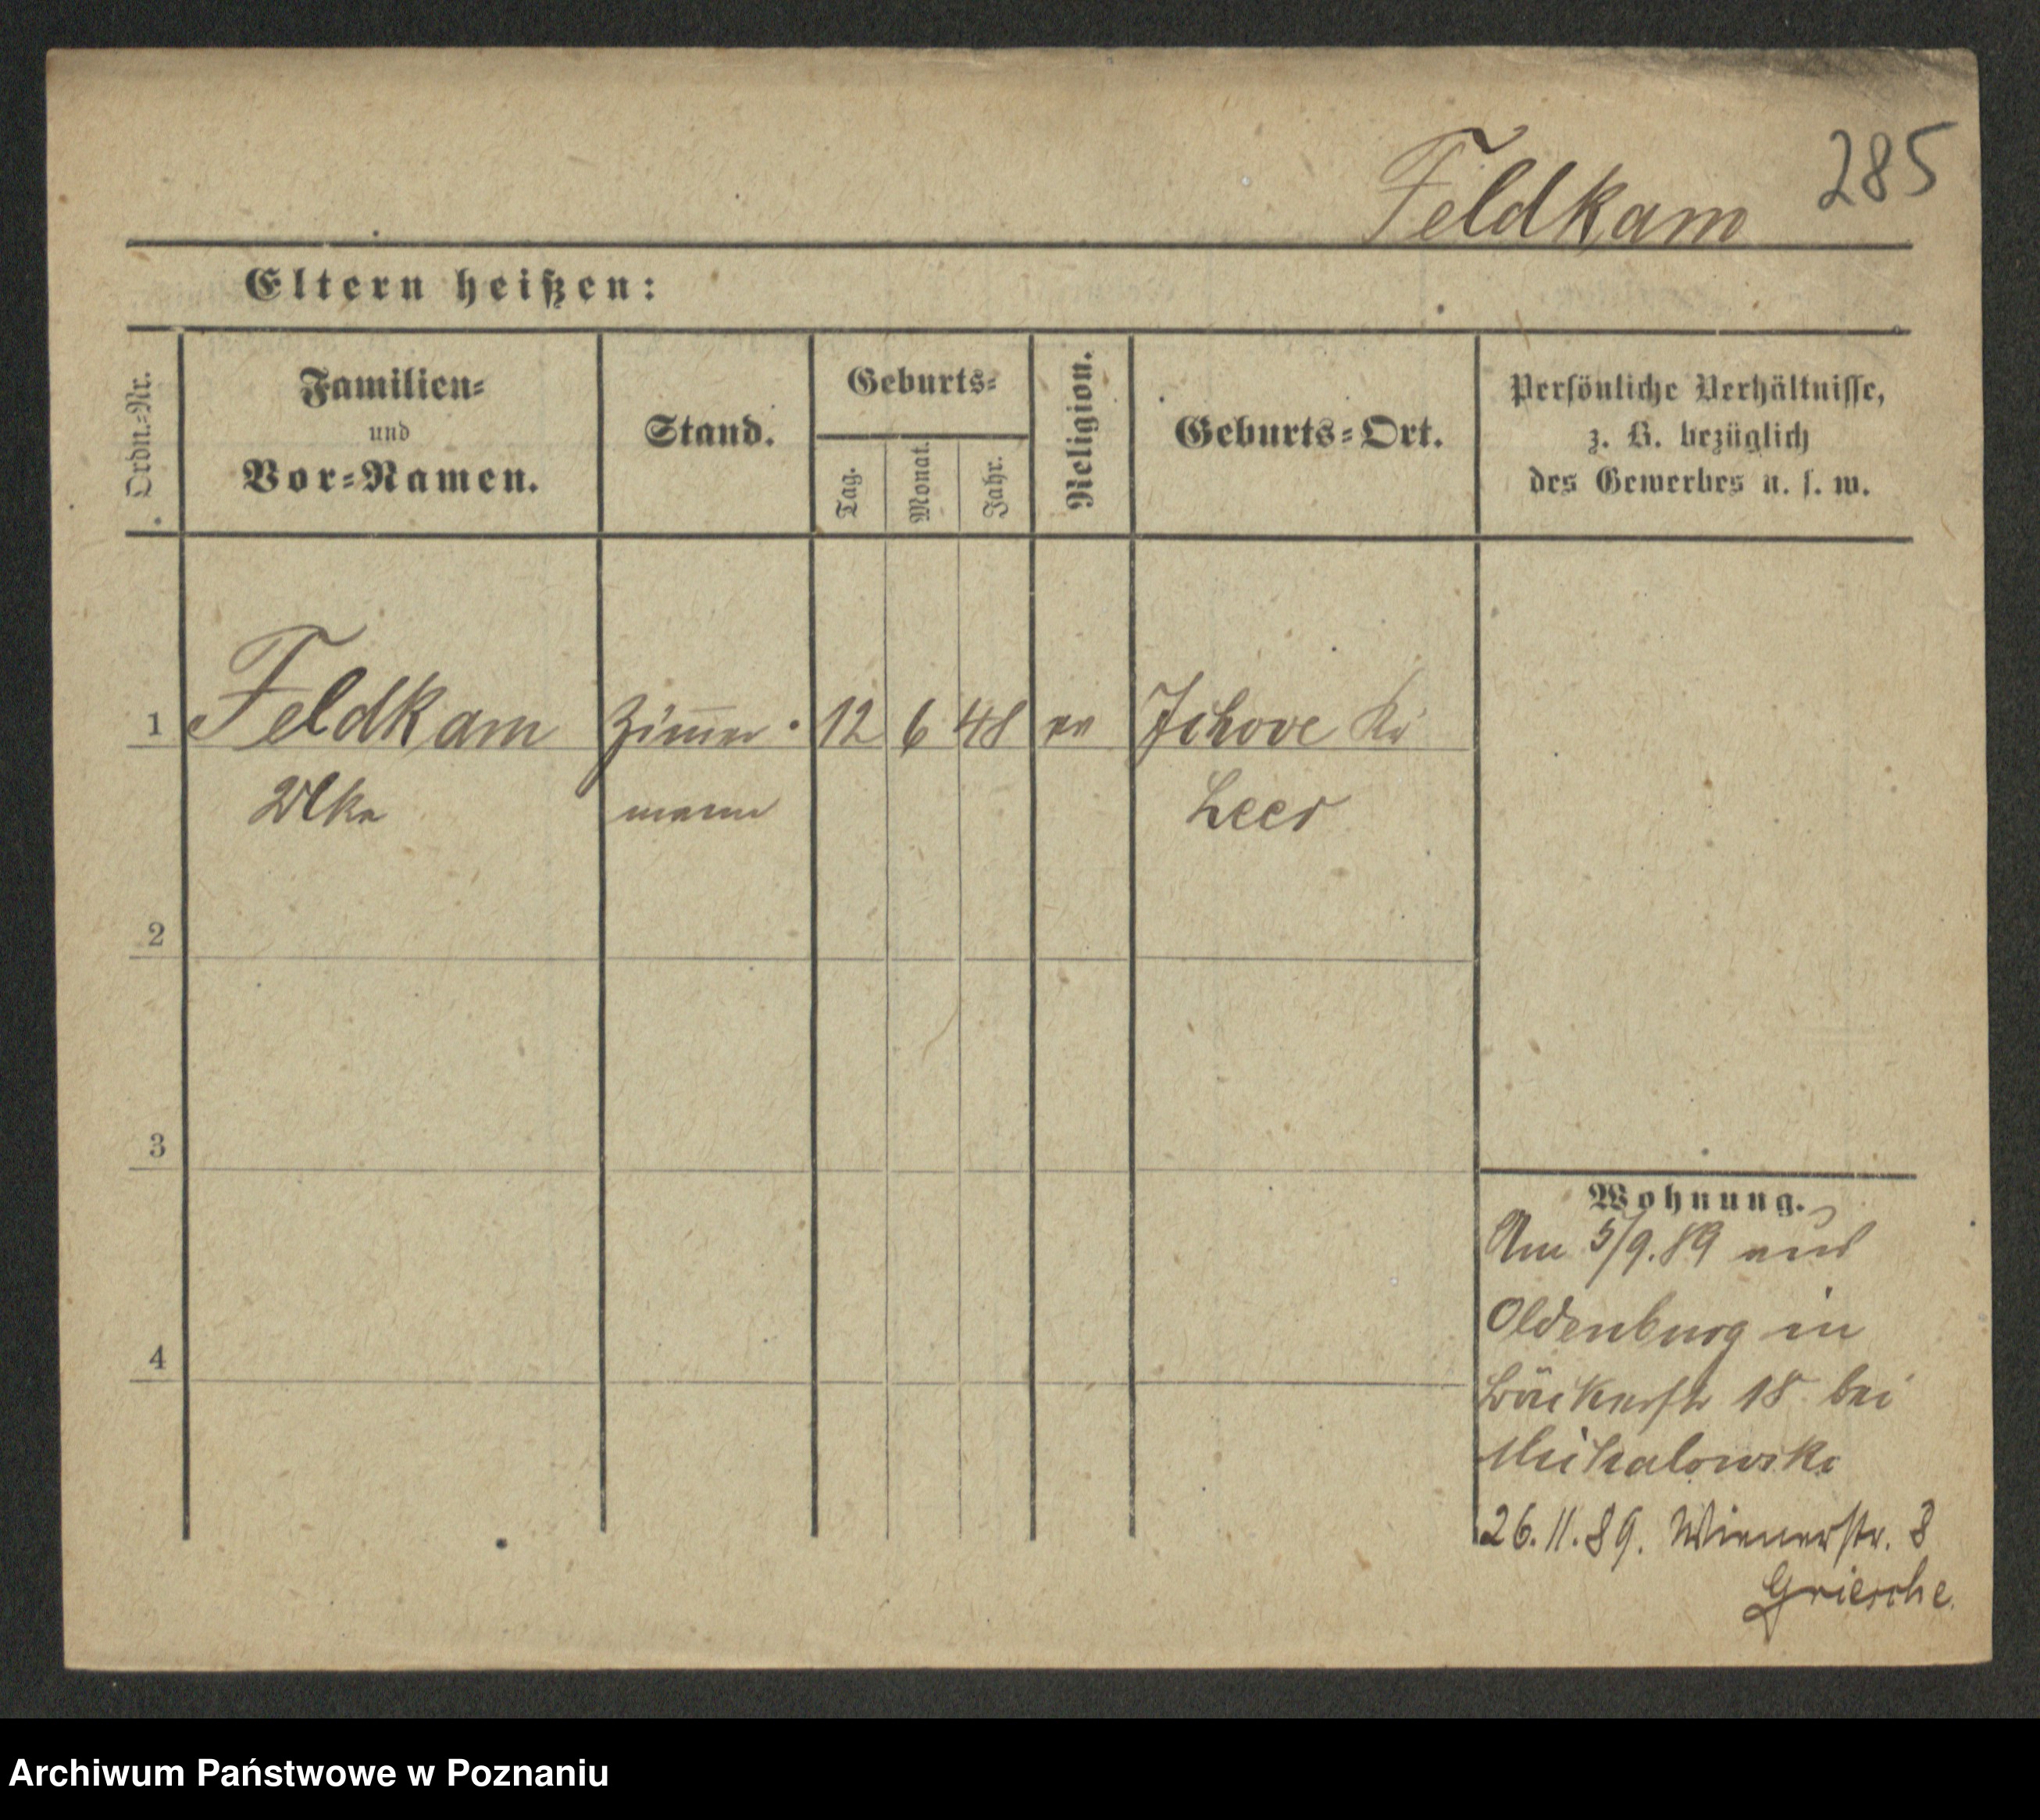 285
Feldkam
Eltern heißen:
Ordn.=Nr.
Familien=
und
Vor=Namen.
Stand.
Geburts=
Tag.
Monat.
Jahr.
Religion.
Geburts=Ort.
Persönliche Verhältnisse,
z. B. bezüglich
des Gewerbes u. s. w.
1 Feldkam Zimmer 12 6 48 ev Ichove
mann Leer
2
3
4
Wohnung.
Am 5/9.89 aus
Oldenburg in
Bäckerstr 18 bei
Michalowski
26.11.89. Wienerstr. 8
Griesche.
Archiwum Państwowe w Poznaniu